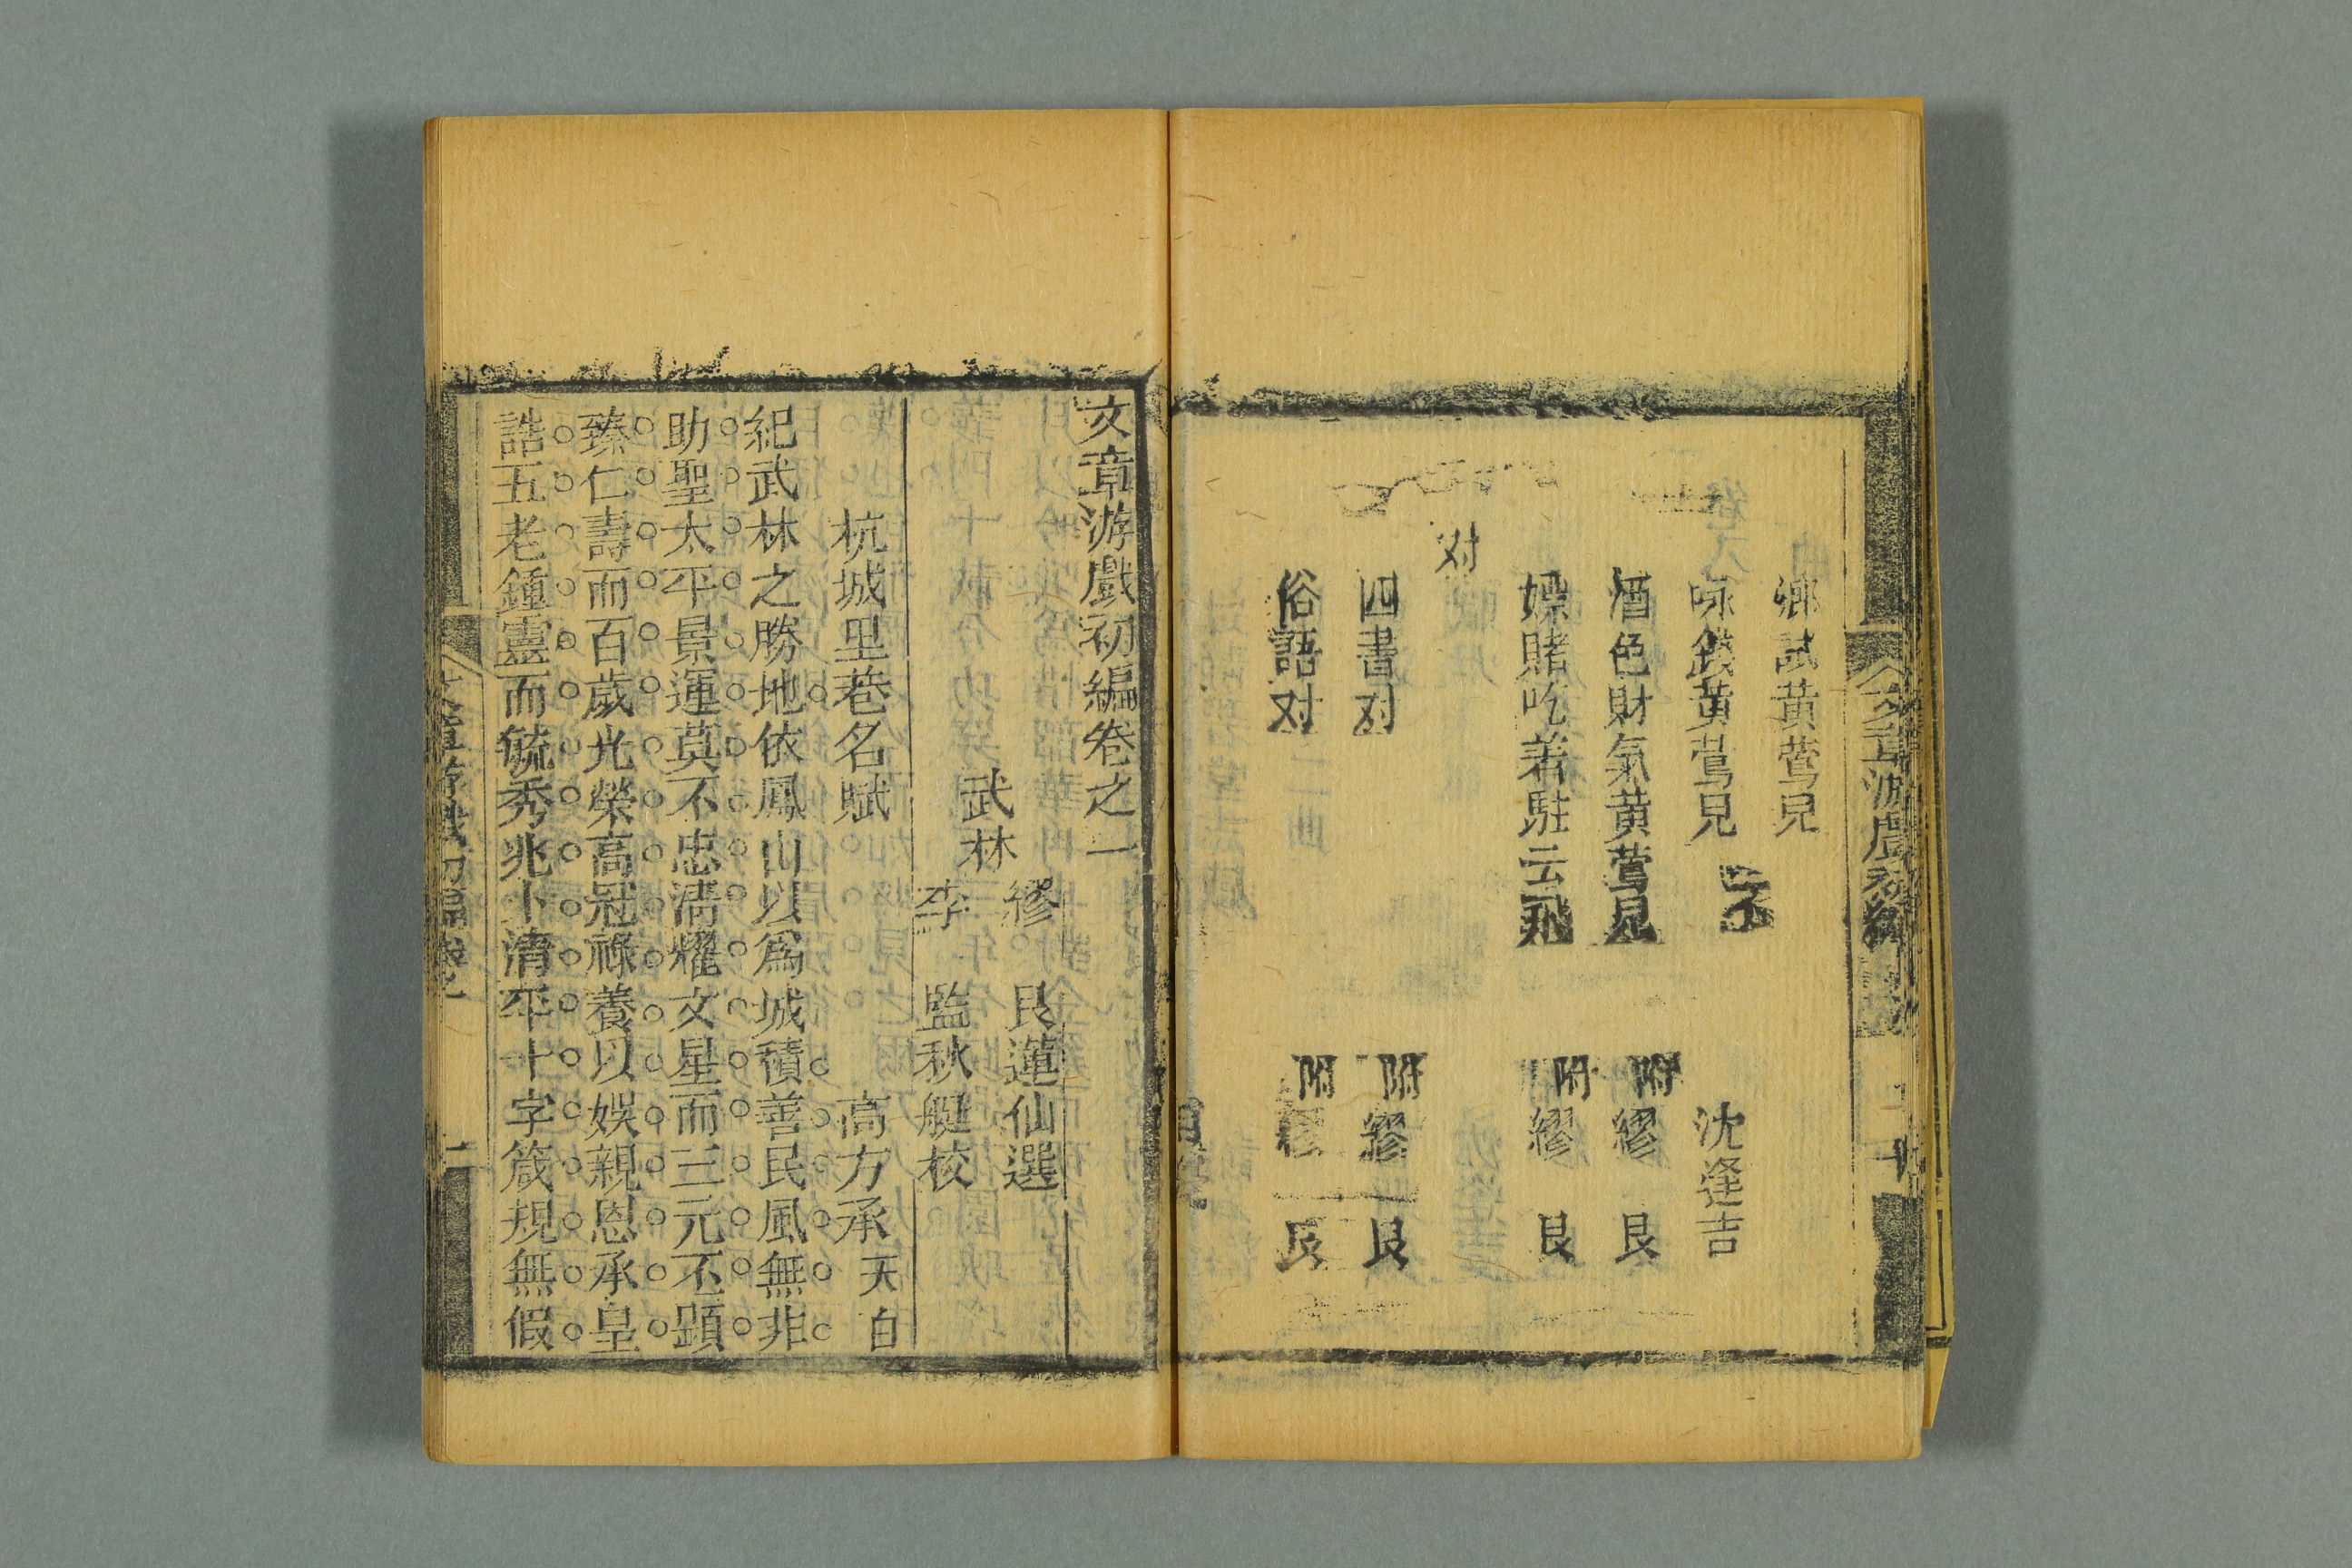 鄉試黃鶯兒
咏錢黃鶯兒 沈逢吉
酒色財氣黃鶯兒 附 繆艮
嫖賭吃着駐云飛 附 繆艮
对
四書对 附 繆艮
俗語对 附 繆艮
文章游戲初編
文章游戲初編卷之一
武林 繆艮蓮仙選
李監秋艇校
杭城里巷名賦 高方承天白
紀武林之勝地依鳳山以為城積善民風無非
助聖太平景運莫不忠淸耀文星而三元不顕
臻仁壽而百歲光榮高冠祿養以娛親恩承皇
誥五老鍾靈而毓秀兆卜清平十字箴規無假
文章游戲初編卷之一